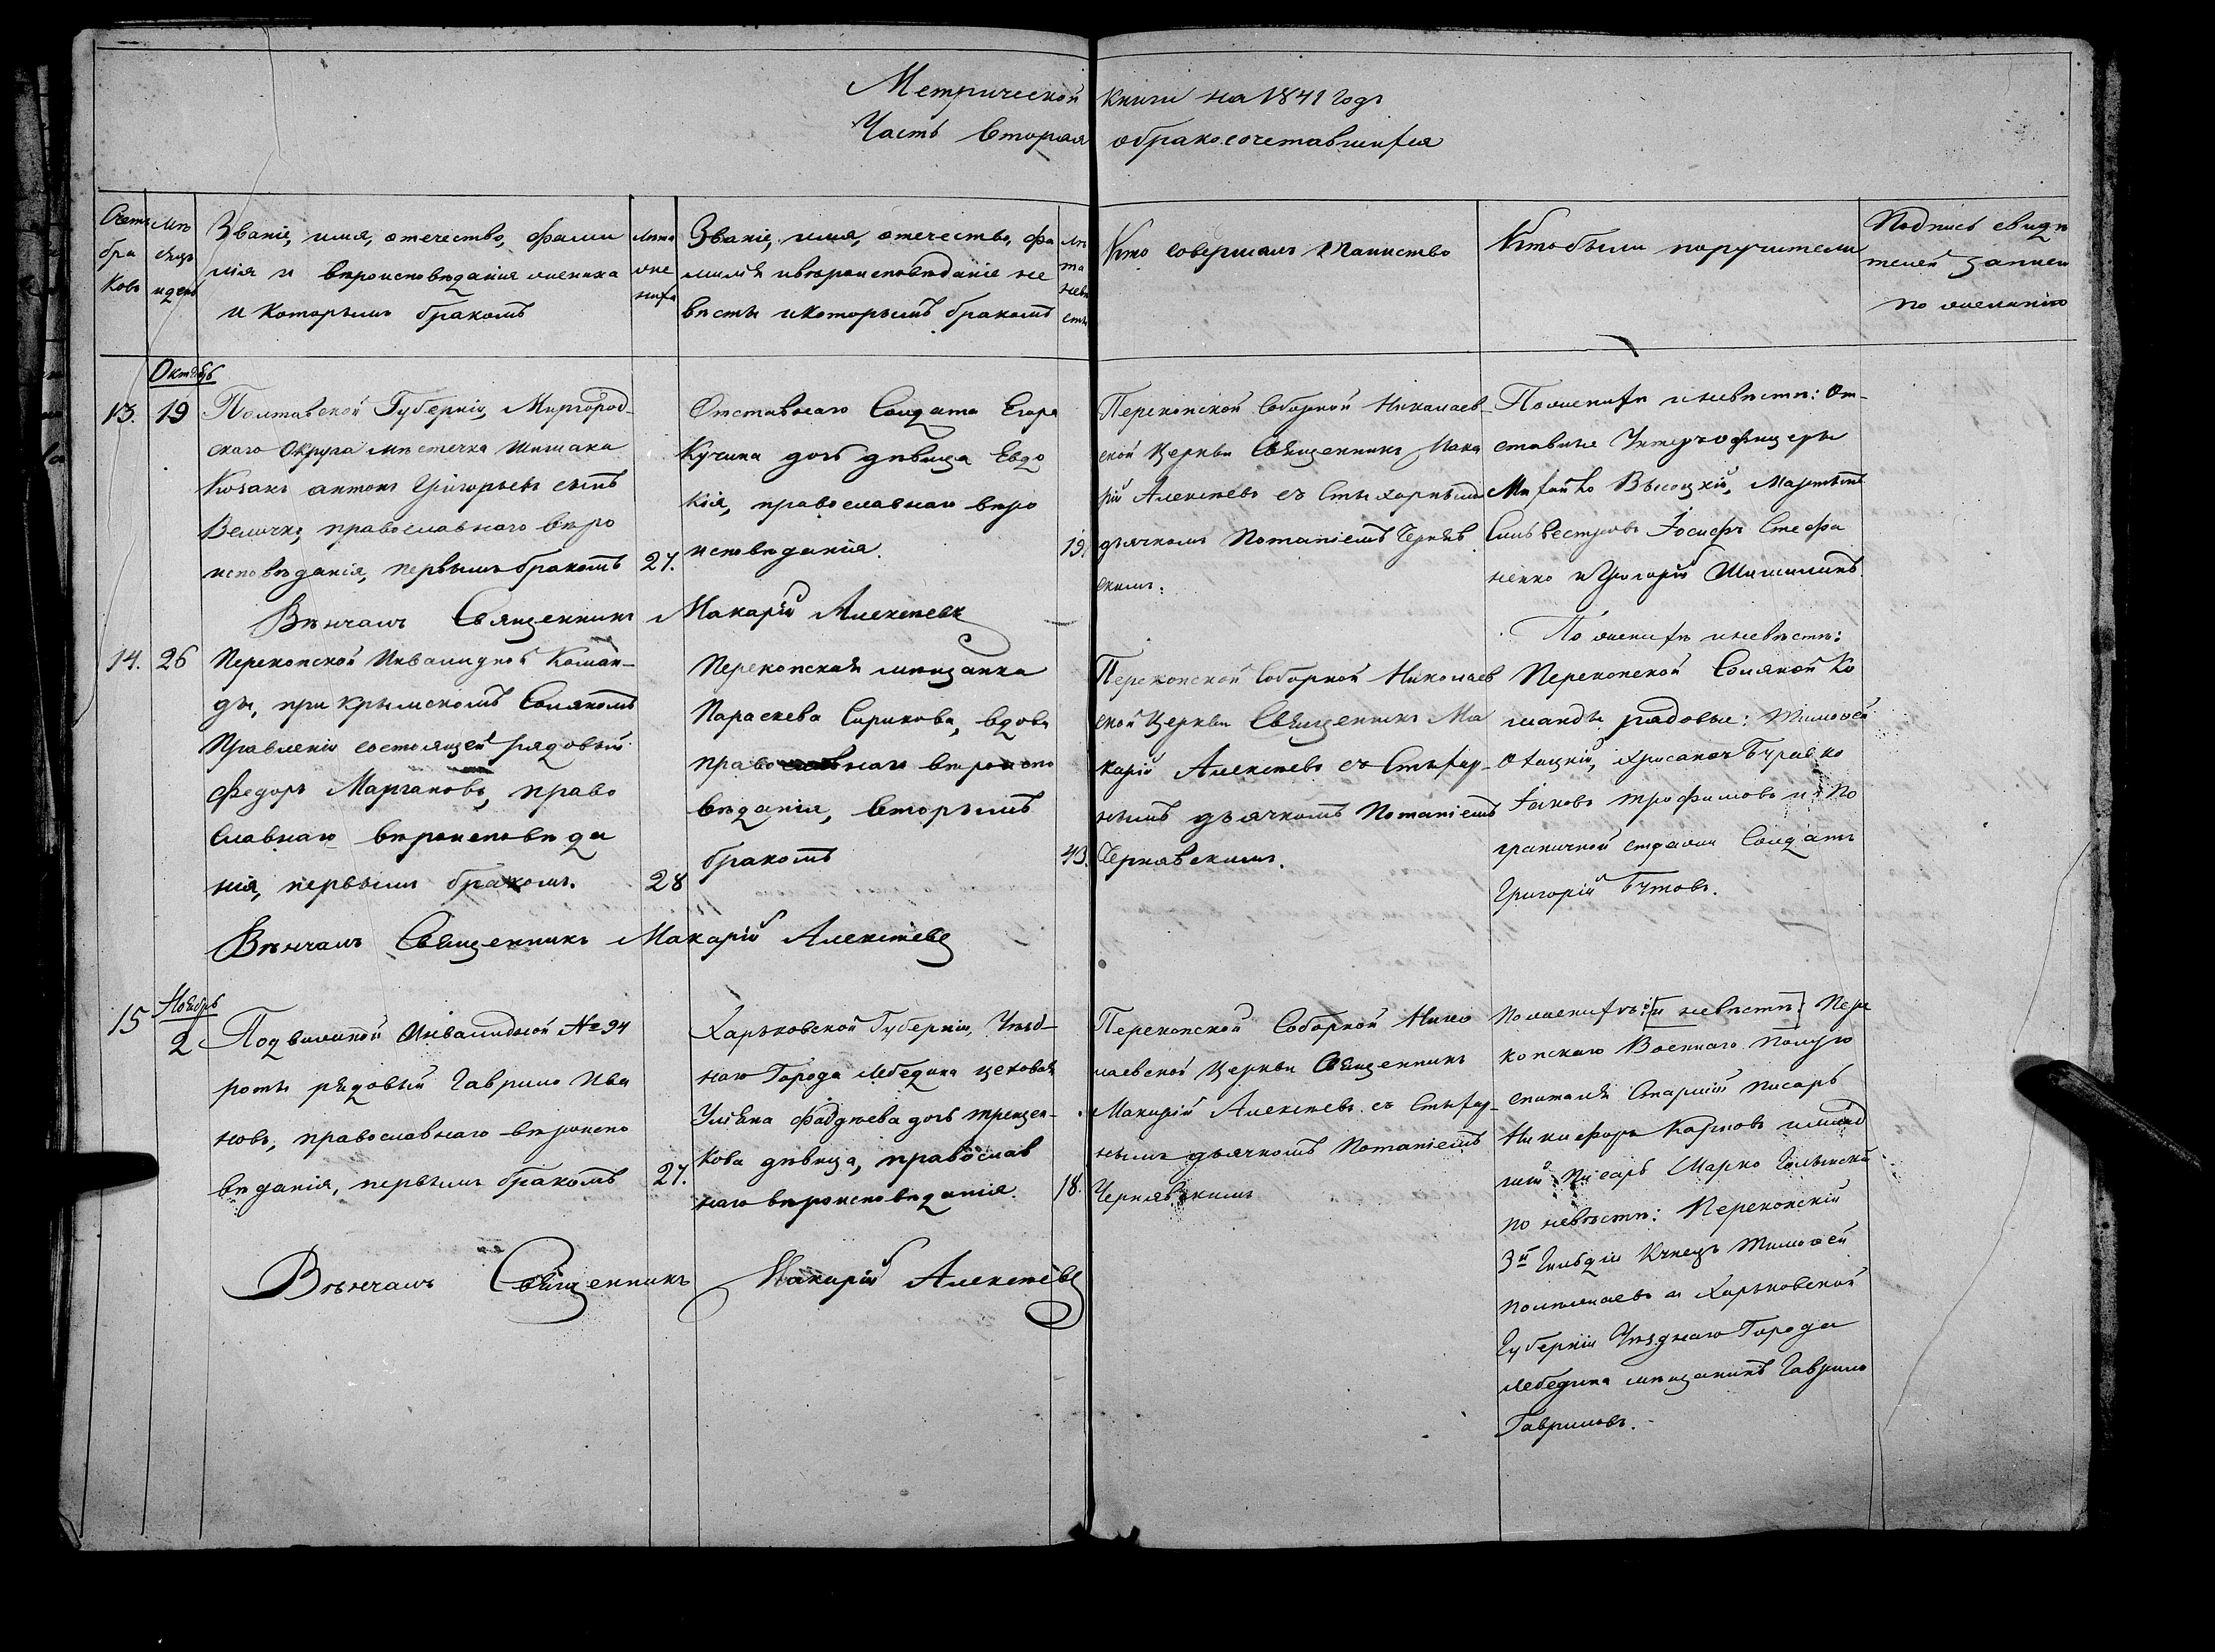 Метрической книги на 1841 годъ
Часть вторая о бракосочетавшихся
Счетъ бра ковъ
Мѣ сяцъ и день
Званіе, имя, отечество, фами
лія и вѣроисповѣданія жениха
и которымъ бракомъ
Лѣта же ниха
Званіе, имя, отечество, фа
милія и вѣроисповѣданіе не
вѣсты и которымъ бракомъ
Лѣ та невѣ сты
Кто совершалъ таинство
Кто были поручители
Подпись свидѣ
телей записи
по желанію
Октябрь
13. 19
Полтавской Губерніи, Миргород-
скаго Округа мѣстечка Шишака
Козакъ антонъ Григорьевъ сынъ
Величко, православнаго вѣро
исповѣданія, первымъ бракомъ
27.
Отставнаго Солдата Егора
Кучина дочь дѣвица Евдо
кія, православнаго вѣро
исповѣданія.
19.
Перекопской Соборной Николаев-
ской Церкви Священникъ Мака
рій Алексѣевъ съ Стихарнымъ
дьячкомъ Потаніемъ Черняв
скимъ.
По женихѣ и невѣстѣ: От-
ставные Унтеръ офицеры
Высоцкій, Мартынъ
Сильвестровъ Іосифъ Стефа
ненко и Григорій
Вѣнчалъ Священникъ Макарій Алексѣевъ
14. 26
Перекопской Инвалидной Коман-
ды, при Крымскомъ Соляномъ
Правленіи состоящей рядовый
Федоръ Маргановъ, право
славнаго вѣроисповѣда
нія, первымъ бракомъ.
28
Перекопская мѣщанка
Параскева Сирикова, вдова
православнаго вѣроиспо
вѣданія, вторымъ
бракомъ
43.
Перекопской Соборной Николаев
ской Церкви Священникъ Ма
карій Алексѣевъ съ Стихар-
нымъ дьячкомъ Потаніемъ
Чернявскимъ.
По женихѣ и невѣстѣ:
Перекопской Соляной Ко
манды рядовые: Тимофей
Хрисанъ Бурявко
Іаковъ Трофимовъ и По
граничной стражи Солдатъ
Григорій Бутовъ.
Вѣнчалъ Священникъ Макарій Алексѣевъ
Ноябрь
15 2
Подвижной Инвалидной № 94
роты рядовый Гаврило Ива
новъ, православнаго вѣроиспо
вѣданія, первымъ бракомъ
27.
Харьковской Губерніи, Уѣзд-
наго Города Лебедина цеховая
Уліяна Фаддѣева дочь Трещен-
кова дѣвица, православ
наго вѣроисповѣданія.
18.
Перекопской Соборной Нико
лаевской Церкви Священникъ
Макарій Алексѣевъ съ Стихар-
нымъ дьячкомъ Потаніемъ
Чернявскимъ
По женихѣ: и невѣстѣ: Пере
копскаго Военнаго Полуго
спиталя Старшій писарь
Никифоръ Карповъ и млад
шій писарь Марко
по невѣстѣ: Перекопскій
3й Гильдіи Купецъ Тимофей
и Харьковской
Губерніи Уѣзднаго Города
Лебедина мѣщанинъ Гаврило
Гавриловъ.
Вѣнчалъ Священникъ Макарій Алексѣевъ